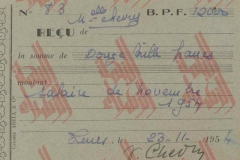 N° 83 B. P. F. 12000
Melle Chevry
REÇU de
la somme de Douze mille francs
montant
salaire de Novembre
1954
le 23-11- 1954
Chevry